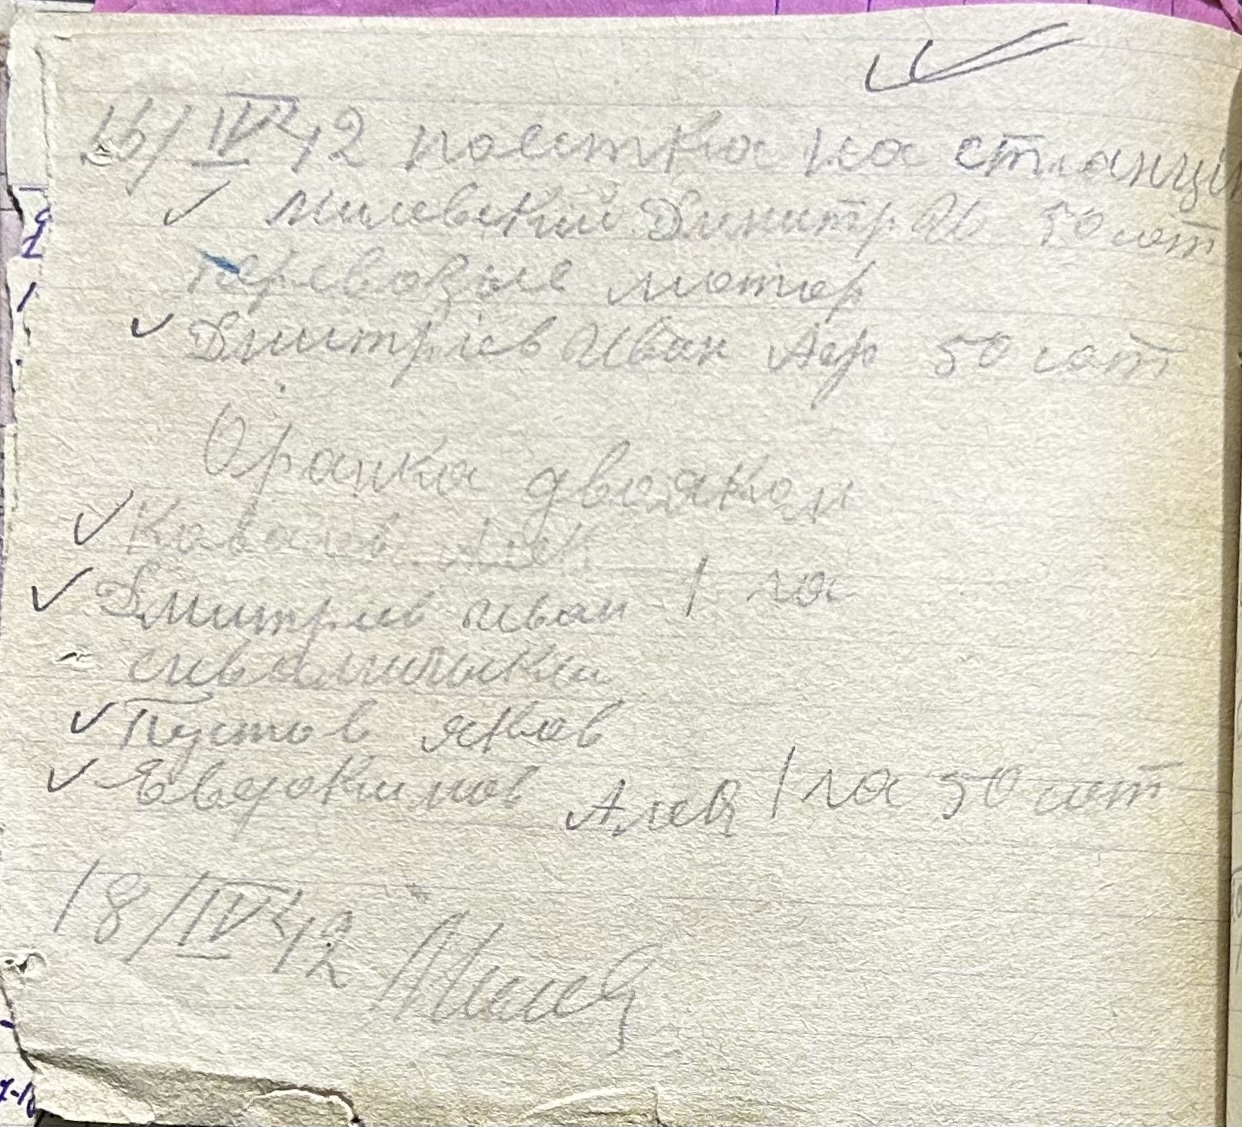 16/IV 42 поестка на станци
Милевский Дмитр Ив 50 сот
перевозыле мотор
Дмитриев Иван Аер 50 сот
Оранка двояком
Ковалев Алек
Дмитриев иван 1 га
Пустов яков
Евдокимов Алек 1 га 50 сот
18/IV 42